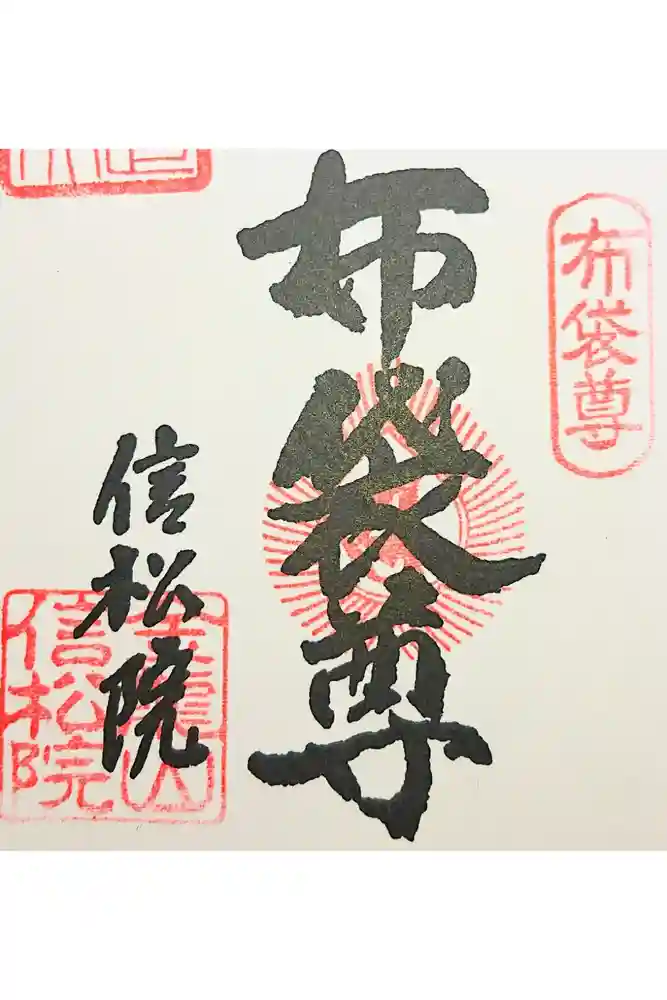 布袋尊
布袋尊
信松院
信松院